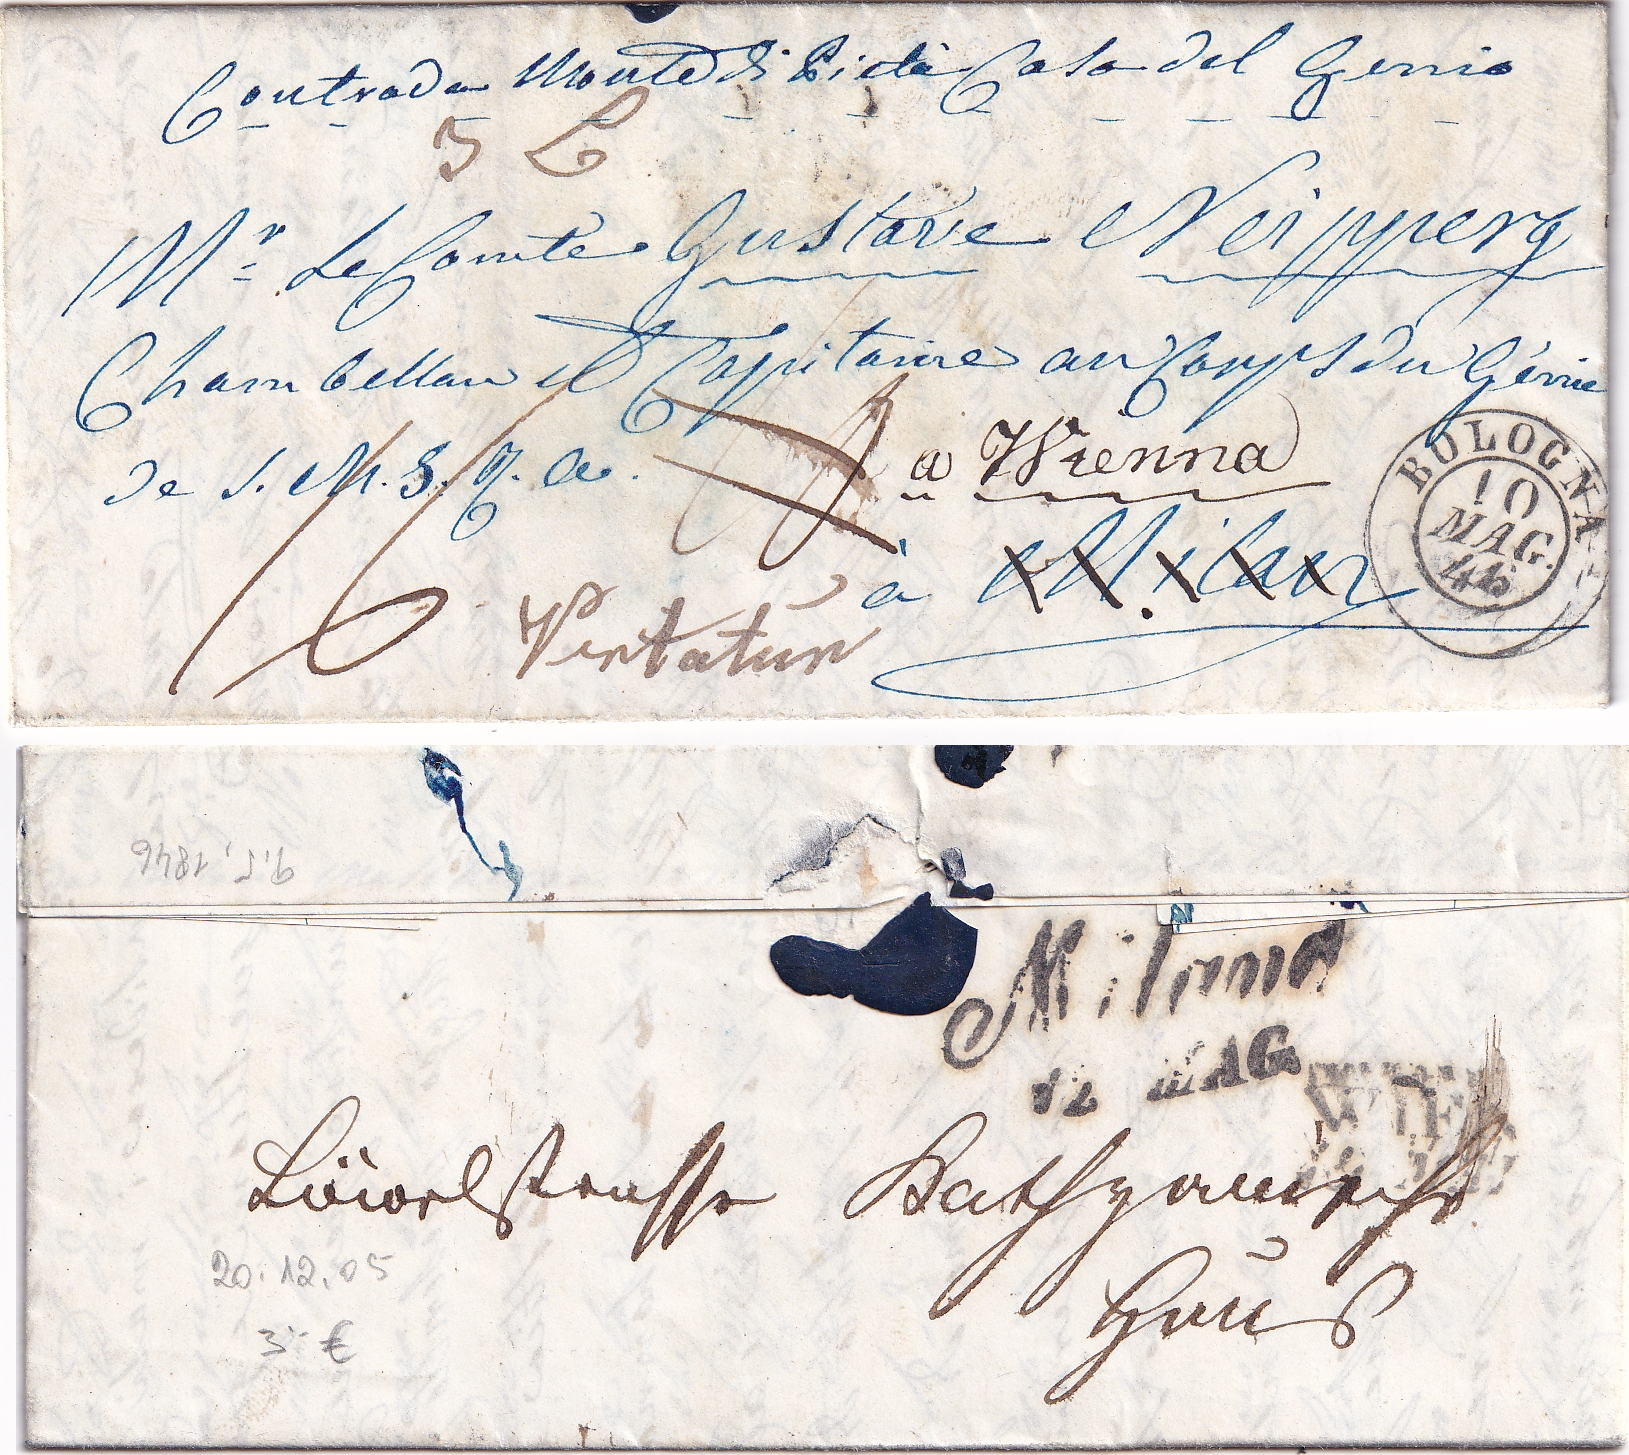 Contrada Monte di Pietà Casa del Genio
3 L
Mr. Le Comte Gustave Neipperg
Chambellan et Capitaine au Corps du Génie
de S. M. I. R. A.
à Wienna
à Milan
16
Vertatur
BOLOGNA
10
MAG.
46
9.5.1846
Milano
12 MAG.
WIEN
Löwelstrasse Bathyanische
Haus
20.12.05
3.- €